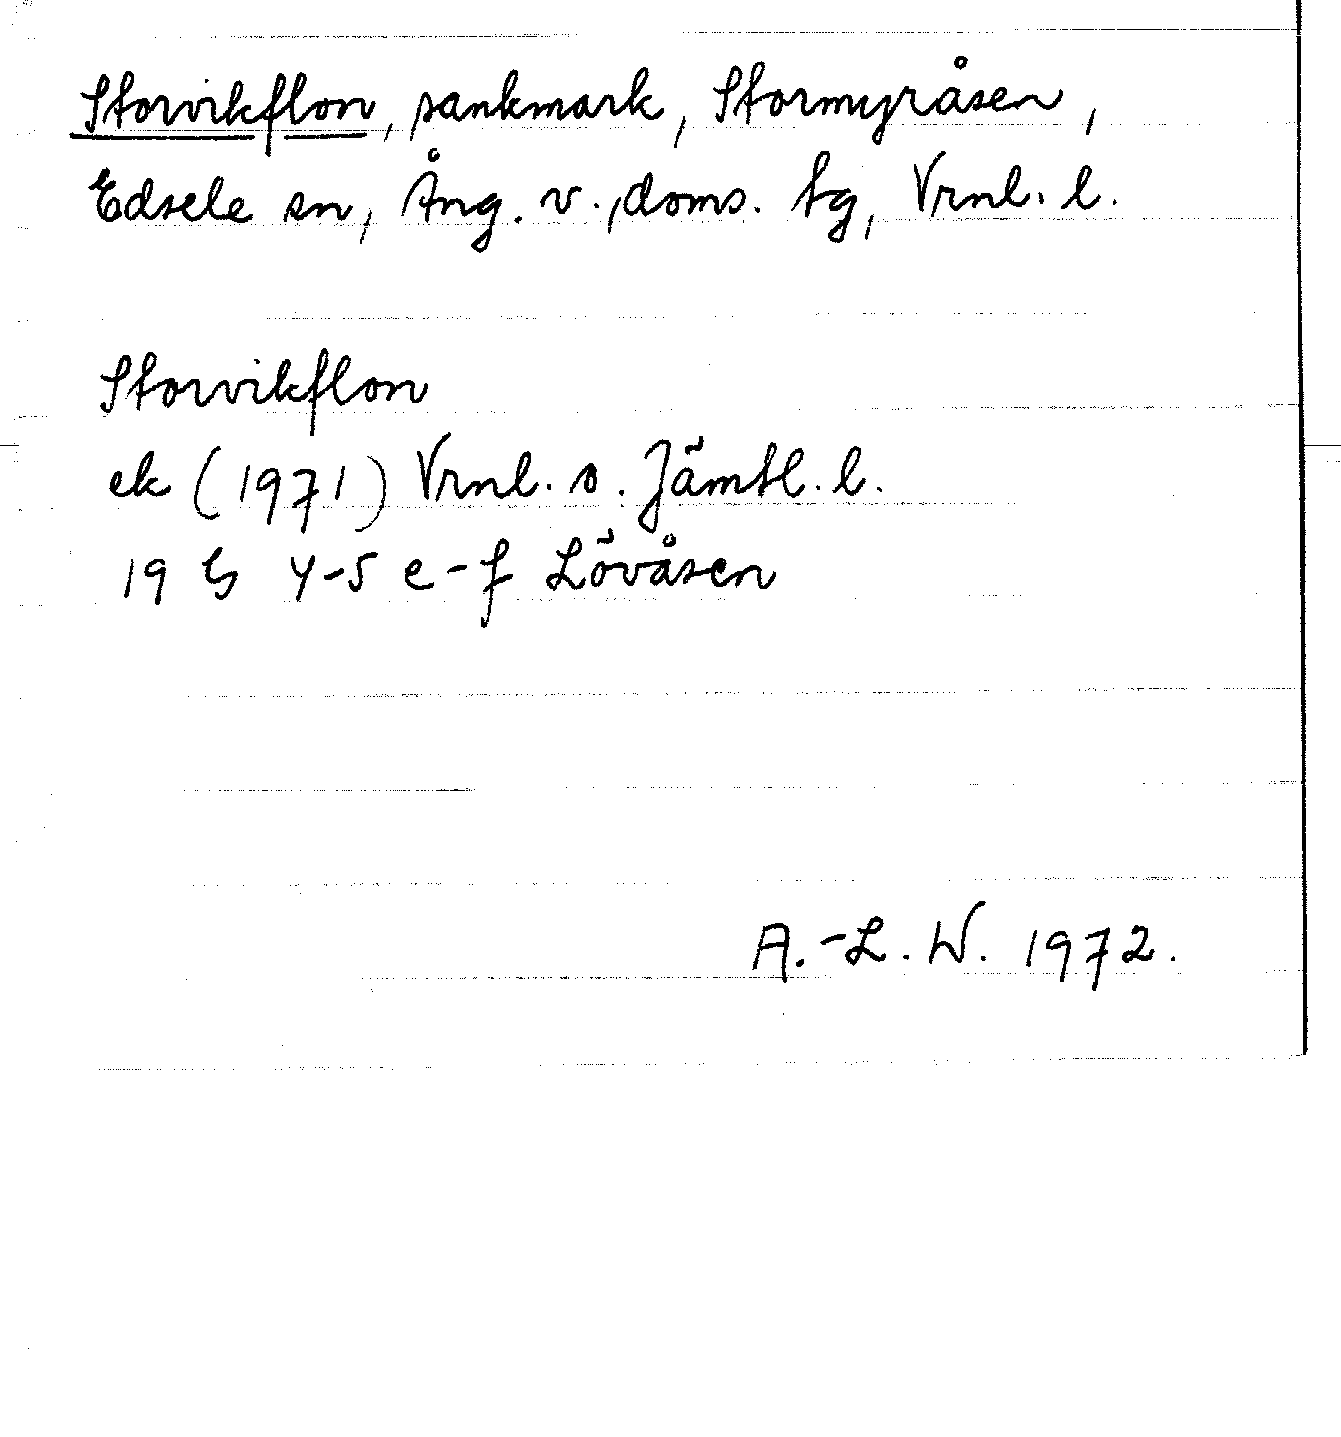 Storvikflon, sankmark, Stormyråsen,
Edsele sn, Ång. v., doms. tg, Vrnl. l.
Storvikflon
ek (1971) Vrnl. o. Jämtl. l.
19 G 4-5 e-f Lövåsen
A.-L. W. 1972.